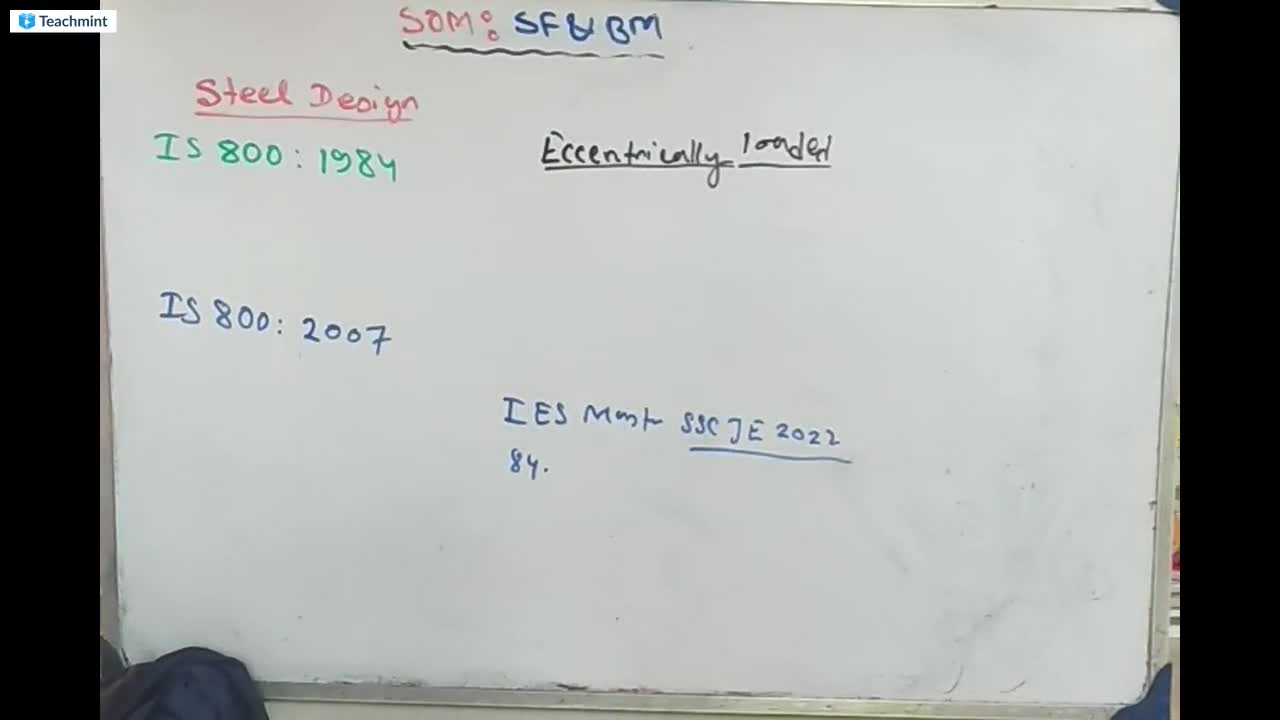 Teachmint
SOM: SF & BM
Steel Design
IS 800 : 1984
Eccentrically loaded
IS 800 : 2007
IES Master SSC JE 2022
84.